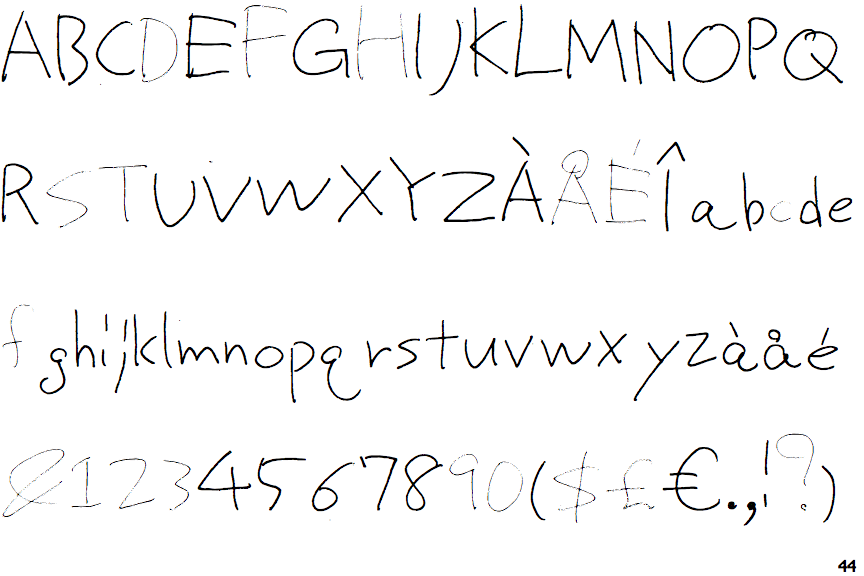 ABCDEFGHIJKLMNOPQ
RSTUVWXYZÀÅÉÎabcde
fghijklmnopqrstuvwxyzàåé
&1234567890($£€.,!?)
44